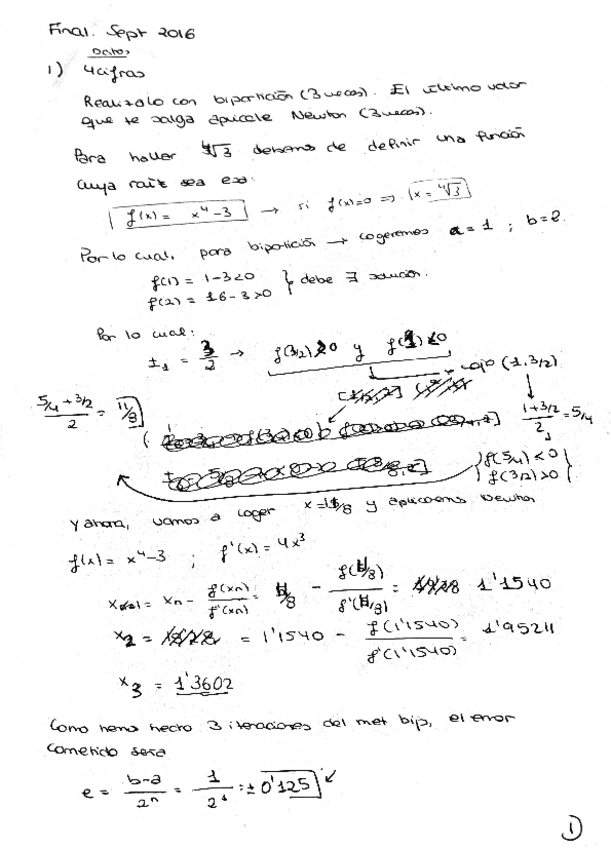 Final. Sept 2016
Datos
1) 4 cifras
Realízalo con bipartición (3 veces). El último valor
que te salga aplícale Newton (3 veces).
Para hallar ∜3 debemos de definir una función
cuya raíz sea esa:
f(x) = x⁴-3 → si f(x)=0 => x = ∜3
Por lo cual, para bipartición → cogeremos a = 1 ; b=2.
f(1) = 1-3<0
f(2) = 16-3>0 } debe ∃ solución.
Por lo cual:
I₁ = 3/2 → f(3/2)>0 y f(1)<0
→ cojo (1, 3/2)
(5/4 + 3/2)/2 = 11/8
(1+3/2)/2 = 5/4
f(5/4) < 0
f(3/2) > 0
Y ahora, vamos a coger x = 11/8 y aplicamos Newton
f(x) = x⁴-3 ; f'(x) = 4x³
= xn - f(xn)/f'(xn) = 11/8 - f(11/8)/f'(11/8) = 1'1540
x₂ = = 1'1540 - f(1'1540)/f'(1'1540) = 1'95211
x₃ = 1'3602
Como hemos hecho 3 iteraciones del met bip, el error
cometido será
e = (b-a)/2ⁿ = = ± 0'125
1